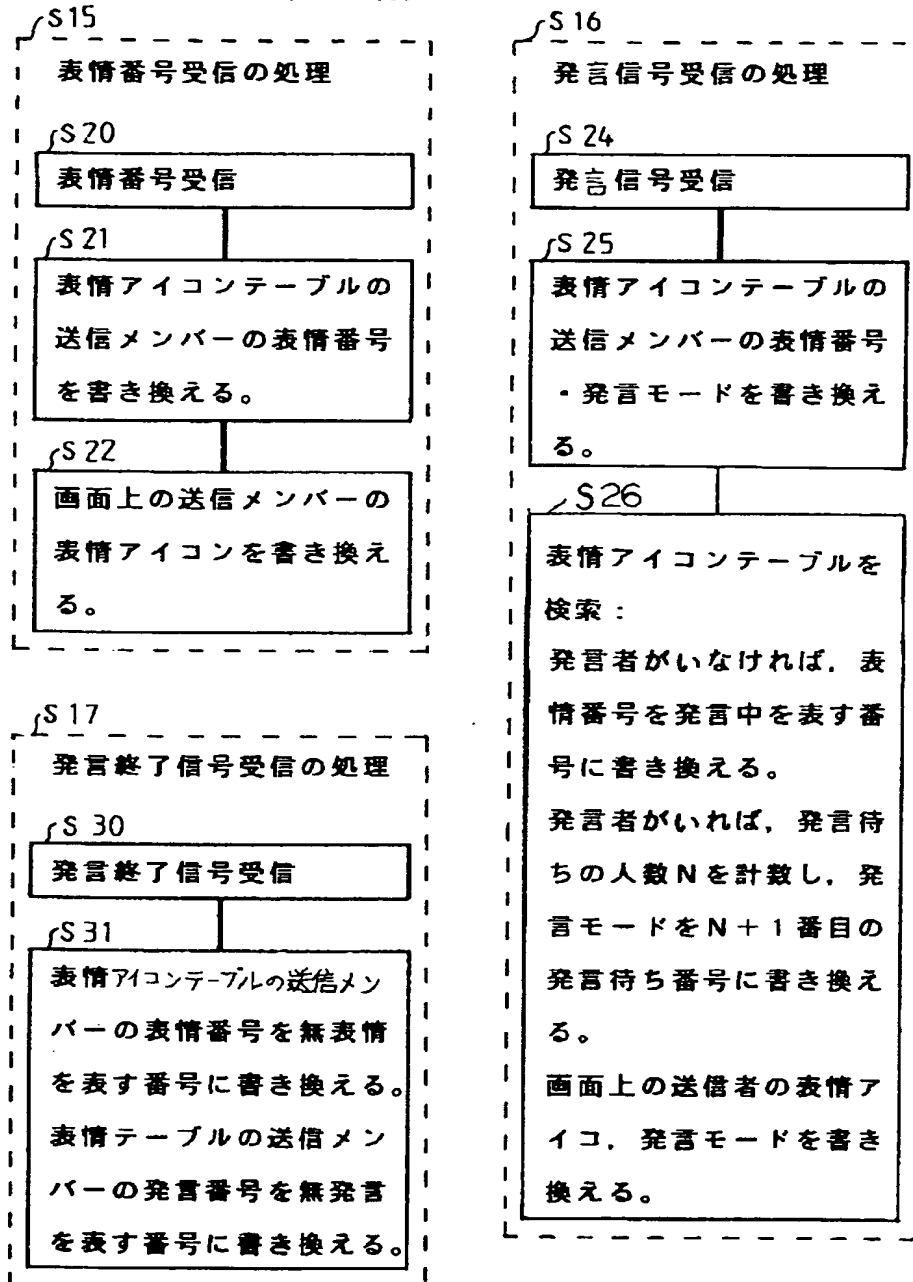 S15
表情番号受信の処理
S20
表情番号受信
S21
表情アイコンテーブルの
送信メンバーの表情番号
を書き換える。
S22
画面上の送信メンバーの
表情アイコンを書き換え
る。
S17
発言終了信号受信の処理
S30
発言終了信号受信
S31
表情アイコンテーブルの送信メン
バーの表情番号を無表情
を表す番号に書き換える。
表情テーブルの送信メン
バーの発言番号を無発言
を表す番号に書き換える。
S16
発言信号受信の処理
S24
発言信号受信
S25
表情アイコンテーブルの
送信メンバーの表情番号
・発言モードを書き換え
る。
S26
表情アイコンテーブルを
検索:
発言者がいなければ,表
情番号を発言中を表す番
号に書き換える。
発言者がいれば,発言待
ちの人数Nを計数し,発
言モードをN+1番目の
発言待ち番号に書き換え
る。
画面上の送信者の表情ア
イコ,発言モードを書き
換える。